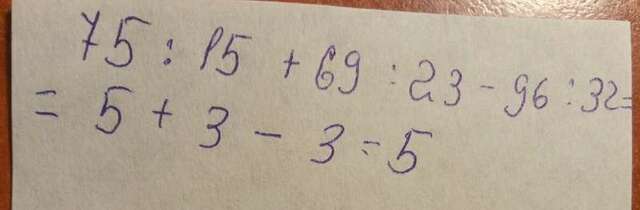 75 : 15 + 69 : 23 - 96 : 32 =
= 5 + 3 - 3 = 5